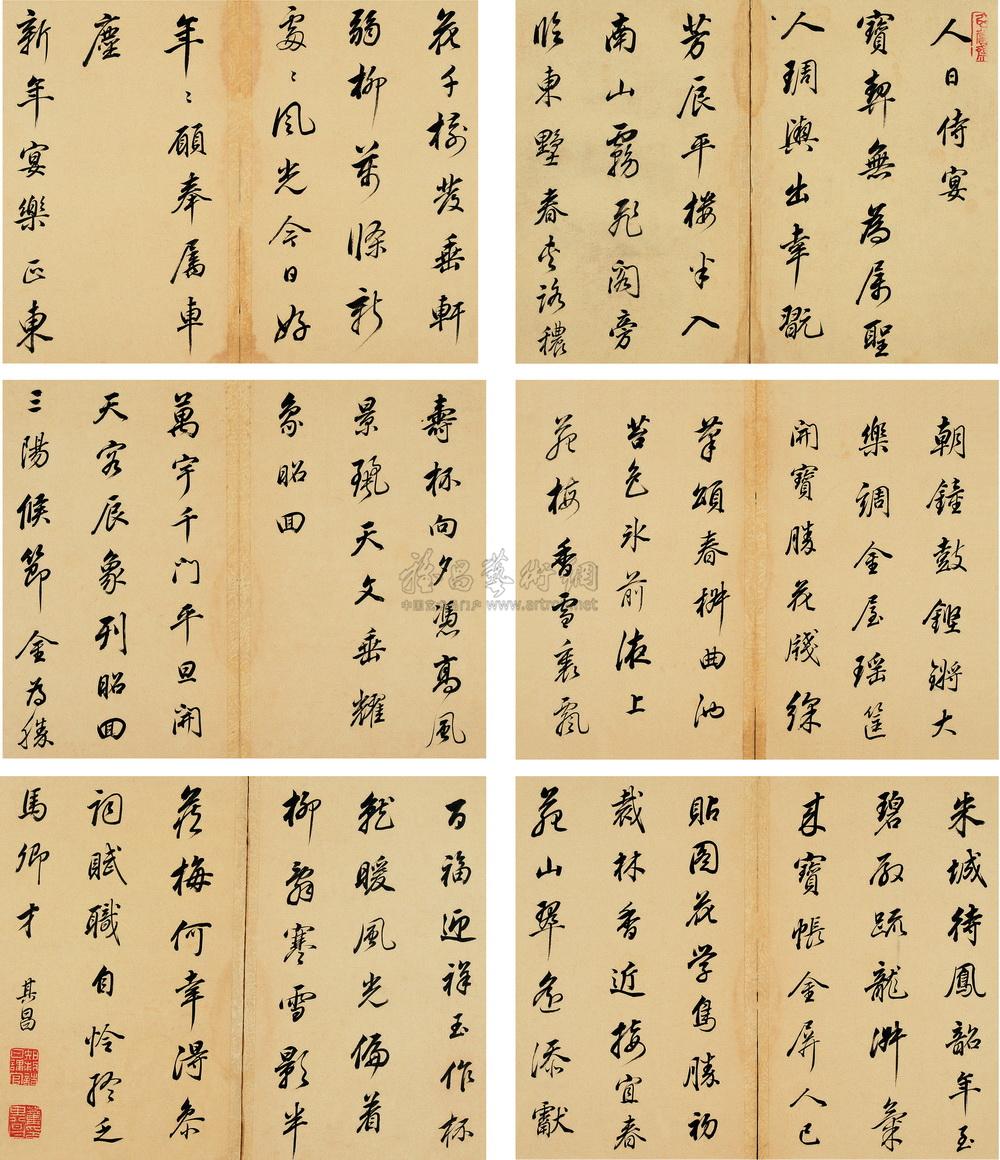 人日侍宴
寶契無為屬聖
人琱輿出幸翫
芳辰平樓半入
南山霧飛閣旁
臨東墅春夾路穠
花千樹發垂軒
弱柳萬條新
處〻風光今日好
年〻願奉屬車
塵
新年宴樂正東
朝鐘鼓鏗鏘大
樂調金屋瑤筐
開寶勝花牋綵
筆頌春椒曲池
苔色冰前液上
苑梅香雪裏飄
壽杯向夕憑高風
景麗天文垂耀
象昭回
萬宇千門平旦開
天容辰象列昭回
三陽候節金為勝
朱城待鳳韶年至
碧殿疏龍淑氣
來寶帳金屏人已
貼圖花學鳥勝初
裁林香近接宜春
苑山翠遙添獻
百福迎祥玉作杯
就暖風光偏着
柳辭寒雪影半
藏梅何幸得參
詞賦職自怜終乏
馬卿才
其昌
知制誥日講官
雅昌藝術網
www.artron.net